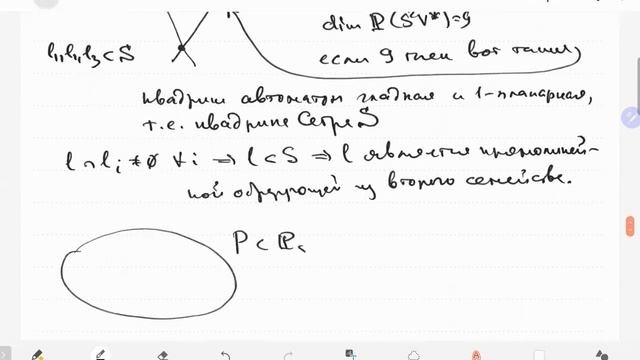 dim ℙ(S²V*)=9
l₁,l₂,l₃ ⊂ S
если 9 точек вот таких,
квадрика автоматом гладкая и 1-планарная,
т.е. квадрика Сегре S
l ∩ lᵢ ≠ ∅ ∀i ⇒ l ⊂ S ⇒ l является прямолиней-
ной образующей из второго семейства.
P ⊂ ℙ